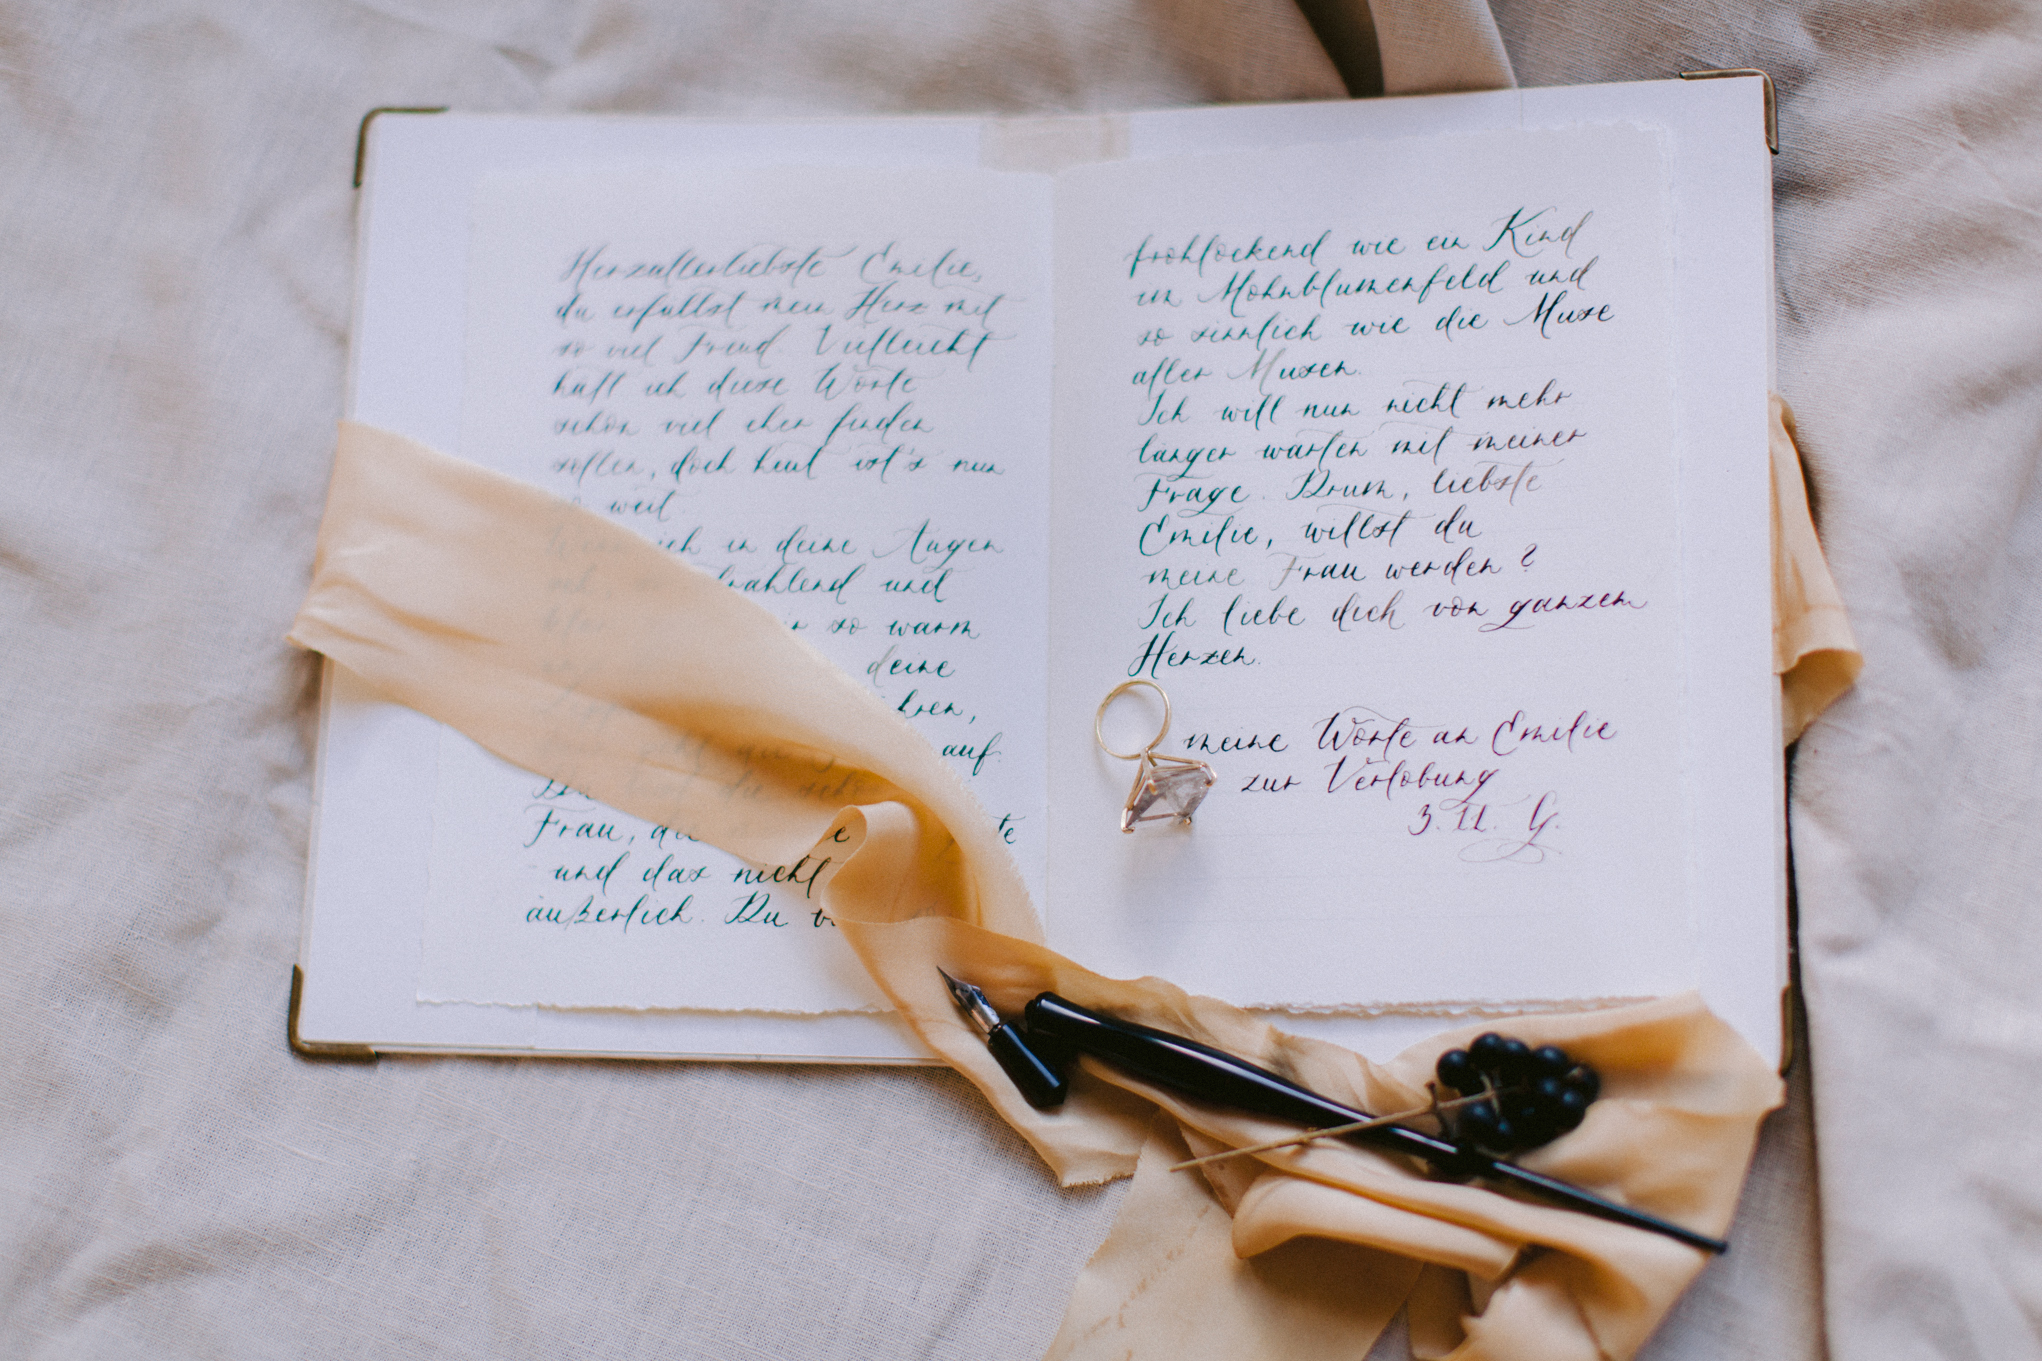 Herzallerliebste Emilie,
du erfüllst mein Herz mit
so viel Freud. Vielleicht
hätt ich diese Worte
schon viel eher finden
sollen, doch heut ist's nun
so weit.
ich in deine Augen
und
so warm
deine
auf.
Du
Frau, die
und das nicht
äußerlich. Du
frohlockend wie ein Kind
im Mohnblumenfeld und
so sinnlich wie die Muse
aller Musen.
Ich will nun nicht mehr
länger warten mit meiner
Frage. Drum, liebste
Emilie, willst du
meine Frau werden?
Ich liebe dich von ganzem
Herzen.
meine Worte an Emilie
zur Verlobung
3. 11. G.